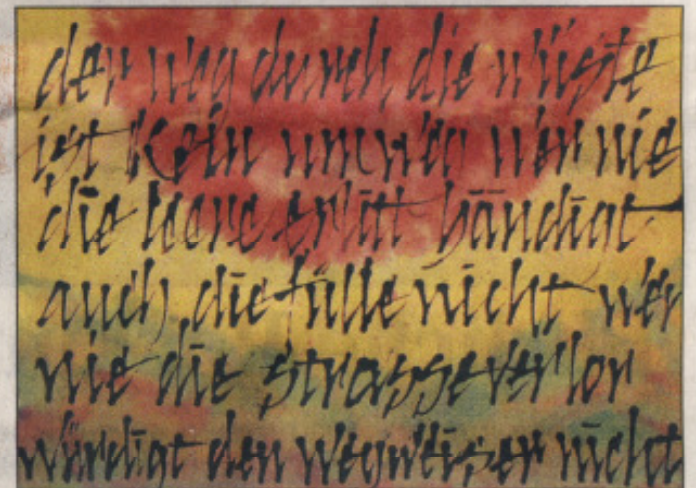 der weg durch die wüste
ist kein umweg wer nie
die leere erlitt bändigt
auch die fülle nicht wer
nie die strasse verlor
würdigt den wegweiser nicht